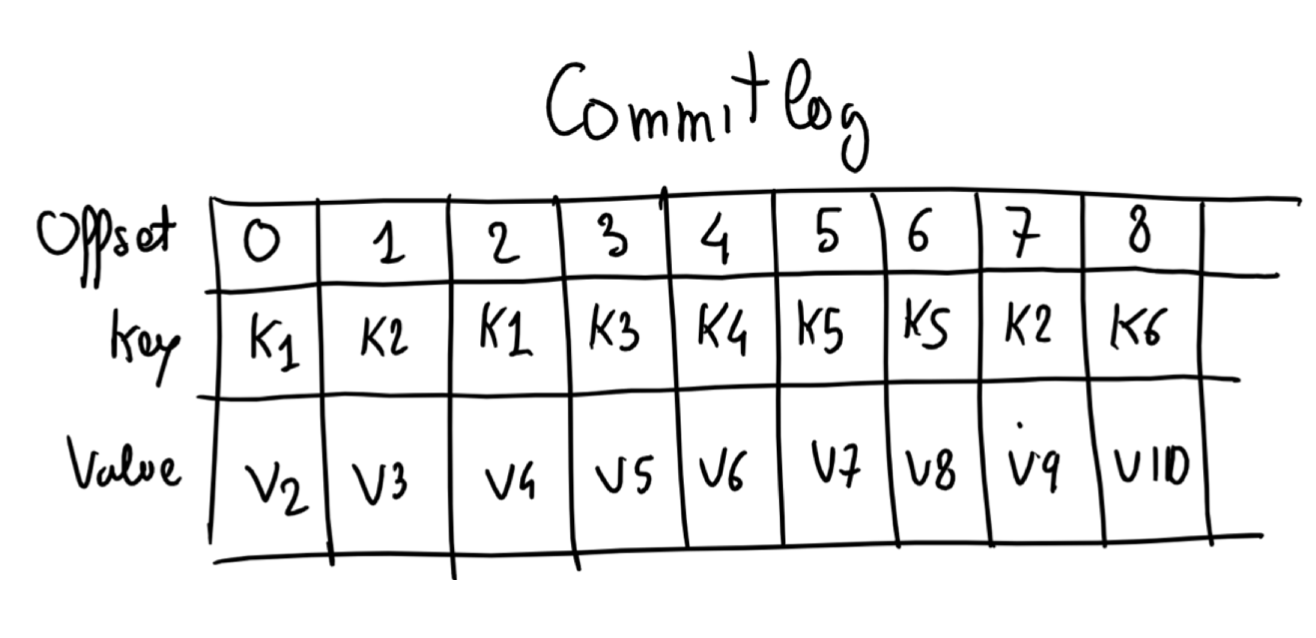 Commitlog
Offset 0 1 2 3 4 5 6 7 8
Key K1 K2 K1 K3 K4 K5 K5 K2 K6
Value V2 V3 V4 V5 V6 V7 V8 V9 V10